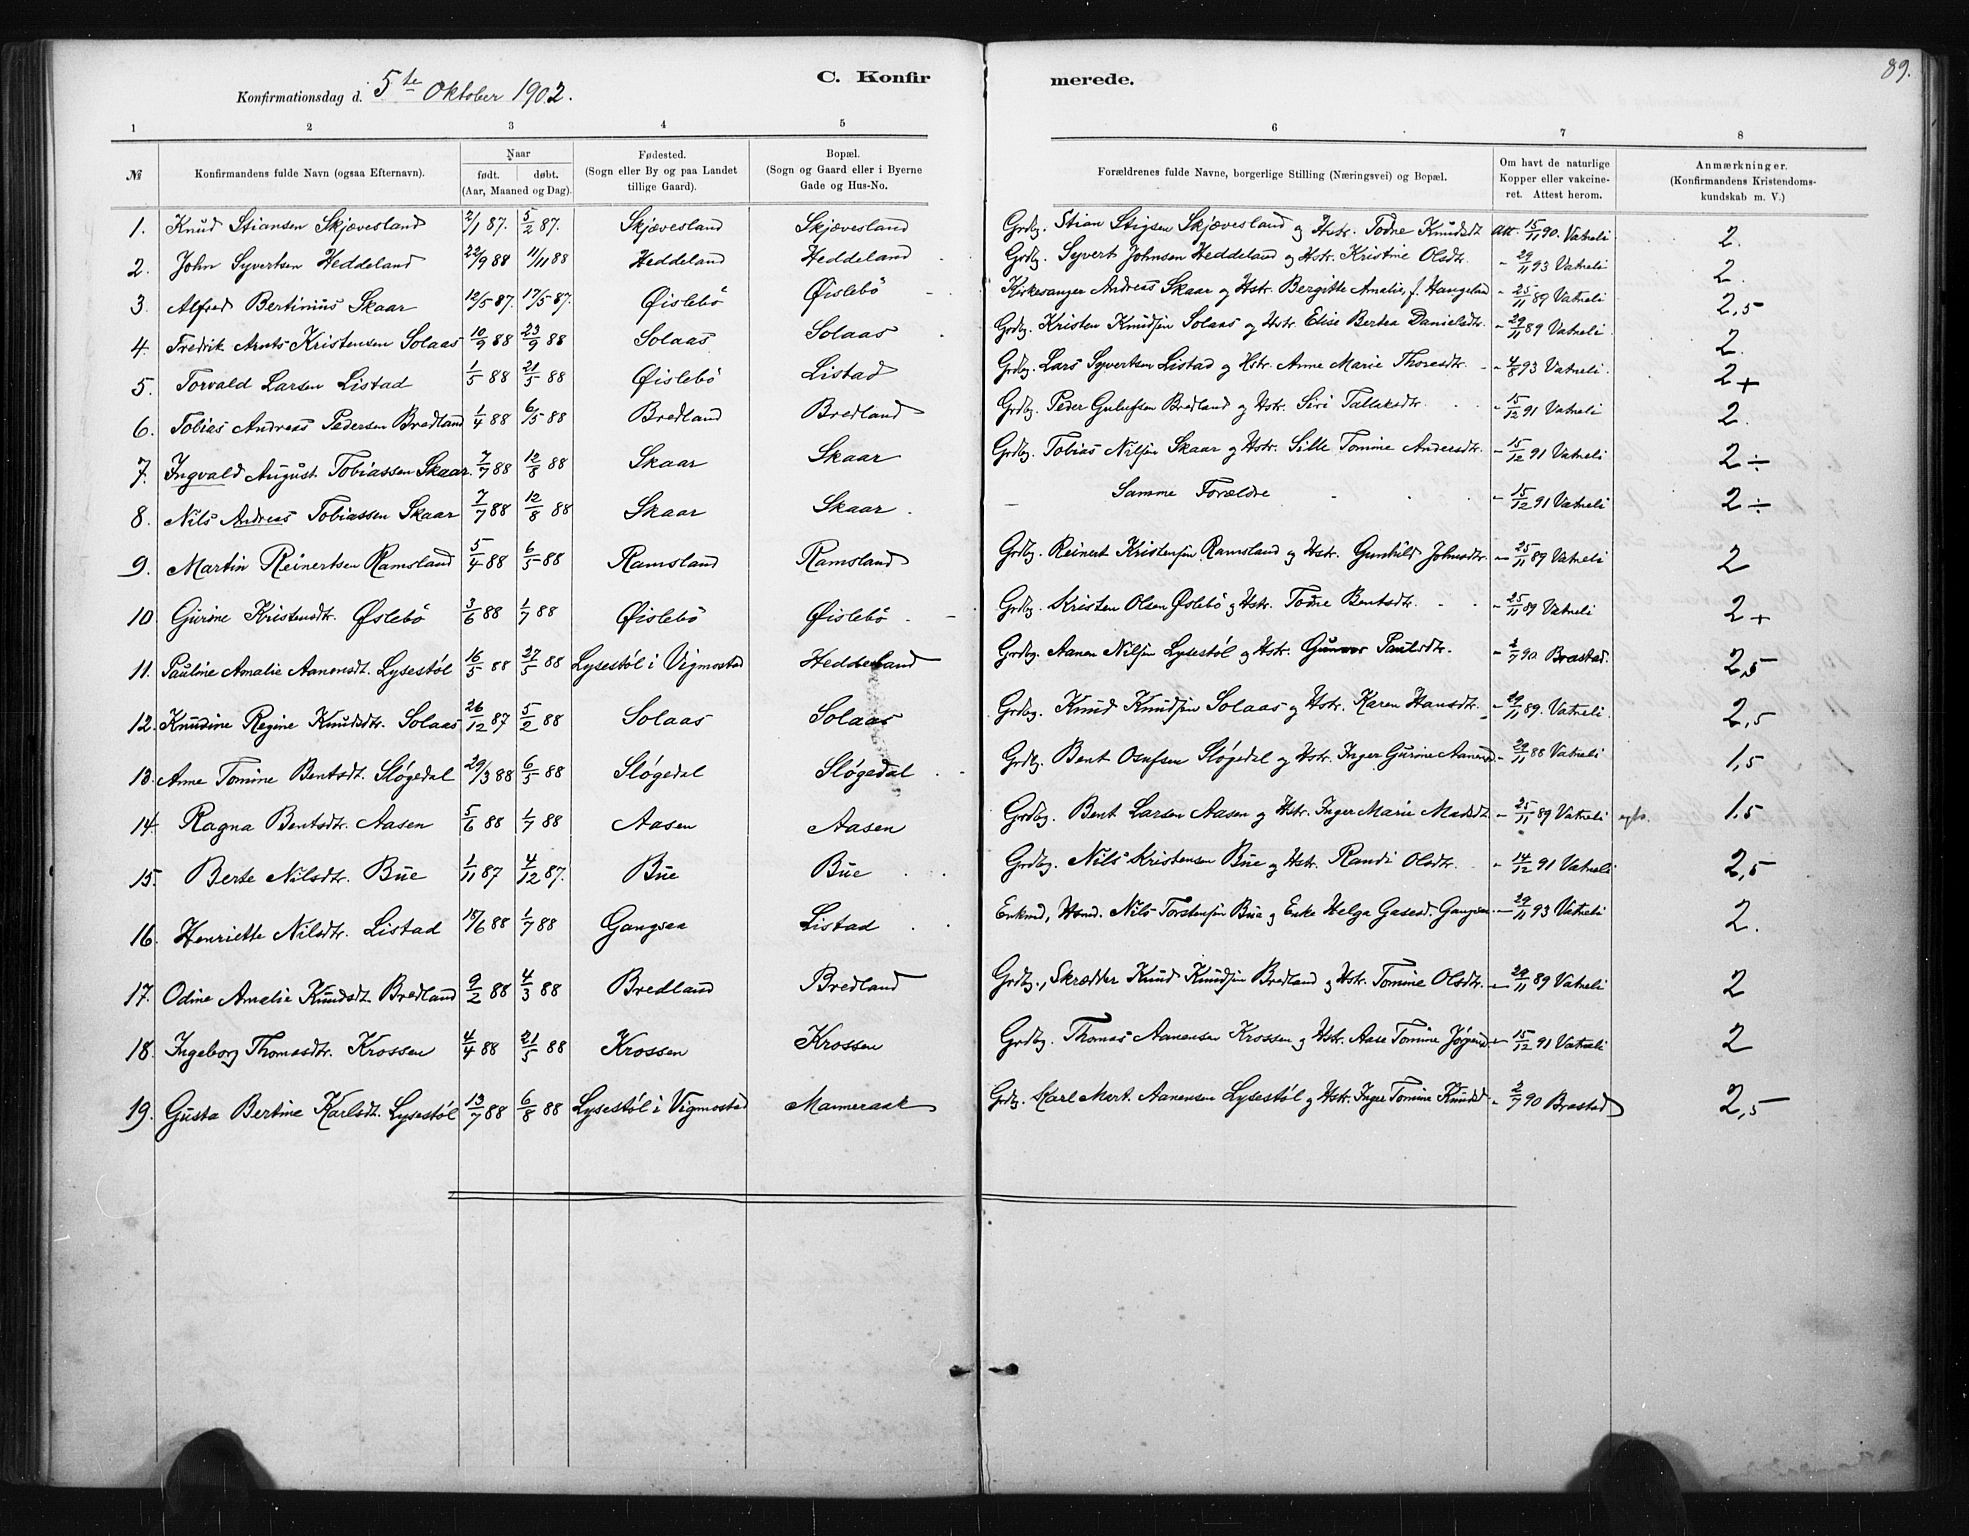 89.
C. Konfirmerede.
Konfirmationsdag d. 5te Oktober 1902.
1 2 3 4 5 6 7 8
№ Konfirmandens fulde Navn (ogsaa Efternavn). Naar født. døbt. (Aar, Maaned og Dag). Fødested. (Sogn eller By og paa Landet tillige Gaard). Bopæl. (Sogn og Gaard eller i Byerne Gade og Hus-No. Forældrenes fulde Navne, borgerlige Stilling (Næringsvei) og Bopæl. Om havt de naturlige Kopper eller vakcineret. Attest herom. Anmærkninger. (Konfirmandens Kristendomskundskab m. V.)
1. Knud Stiansen Skjævesland 2/1 87. 5/2 87. Skjævesland Skjævesland Grdbg. Stian Stigsen Skjævesland og Hstr. Todne Knudsdt. Att. 15/11 90. Vatneli 2.
2. John Syvertsen Heddeland 22/9 88 11/11 88 Heddeland Heddeland Grdbg. Syvert Johnsen Heddeland og Hstr. Kristine Olsdtr. - 29/11 93 Vatneli 2.
3. Alfred Bertinius Skaar 12/5 87. 17/5 87. Øislebö Øislebö Kirkesanger Andreas Skaar og Hstr. Bergitte Amalie, f. Haugeland - 25/11 89 Vatneli 2,5
4. Fredrik Arnts Kristensen Solaas 10/9 88 23/9 88 Solaas Solaas Grdbg. Kristen Knudsen Solaas og Hstr. Elise Bertea Danielsdtr. - 29/11 89 Vatneli 2.
5. Torvald Larsen Listad 1/5 88 21/5 88 Øislebö Listad Grdbg. Lars Syvertsen Listad og Hstr. Anne Marie Thoresdtr. - 4/8 93 Vatneli. 2+
6. Tobias Andreas Pedersen Bredland 1/4 88 6/5 88 Bredland Bredland Grdbg. Peder Gulufsen Bredland og Hstr. Siri Tallaksdtr. - 15/12 91 Vatneli 2.
7. Ingvald August Tobiassen Skaar. 7/7 88 12/8 88 Skaar Skaar Grdbg. Tobias Nilsen Skaar og Hstr. Sille Tomine Andersdtr. - 15/12 91 Vatneli 2÷
8. Nils Andreas Tobiassen Skaar 7/7 88 12/8 88 Skaar Skaar. - Samme Forældre - 15/12 91 Vatneli 2÷
9. Martin Reinertsen Ramsland 5/4 88 6/5 88 Ramsland Ramsland Grdbg. Reinert Kristensen Ramsland og Hstr. Gunhild Johnsdtr. - 25/11 89 Vatneli 2
10 Gurine Kristensdtr. Øslebö 3/6 88 1/7 88 Øislebö Øislebö Grdbg. Kristen Olsen Øslebö og Hstr. Todne Bentsdtr. - 25/11 89 Vatneli 2+
11. Pauline Amalie Aanensdt. Lysestøl 16/5 88 27/5 88 Lysestöl i Vigmostad Heddeland Grdbg. Aanen Nilsen Lysestøl og Hstr. Gunvor Paulsdtr. - 2/7 90 Brastad. 2,5
12. Knudine Regine Knudsdtr. Solaas 26/12 87 5/2 88 Solaas Solaas Grdbg. Knud Knudsen Solaas og Hstr. Karen Hansdtr. - 29/11 89. Vatneli. 2,5
13. Anne Tomine Bentsdt. Sløgedal 29/3 88 6/5 88 Sløgedal Sløgedal Grdbg. Bent Osufsen Sløgedal og Hstr. Inger Gurine Aanensd - 29/11 88 Vatneli 1,5
14. Ragna Bentsdtr. Aasen 5/6 88 1/7 88 Aasen Aasen Grdbg. Bent Larsen Aasen og Hstr. Inger Marie Madsdt - 25/11 89 Vatneli 1,5
15. Berte Nilsdtr. Bue 1/11 87 4/12 87. Bue Bue Grdbg. Nils Kristensen Bue og Hstr. Randi Olsdtr. - 14/12 91 Vatneli 2,5
16. Henriette Nilsdtr. Listad 18/6 88 1/7 88 Gangsaa Listad Enkmd, Hsmd. Nils Torstensen Bue og Enke Helga Gasesd. Gangsaa. - 29/11 93 Vatneli 2.
17. Odine Amalie Knudsdt. Bredland 9/2 88 4/3 88 Bredland Bredland Grdbg., Skrædder Knud Knudsen Bredland og Hstr. Tomine Olsdtr. - 29/11 89 Vatneli 2
18. Ingeborg Thomasdtr. Krossen 4/4 88 21/5 88 Krossen Krossen Grdbg. Thomas Aanensen Krossen og Hstr. Aase Tomine Jørgensd - 15/12 91 Vatneli 2
19. Gusta Bertine Karlsdt. Lysestöl 13/7 88 6/8 88 Lysestöl i Vigmostad Mameraak Grdbg. Karl Mert. Aanensen Lysestøl og Hstr. Inger Tomine Knudsd - 2/7 90 Brastad 2,5